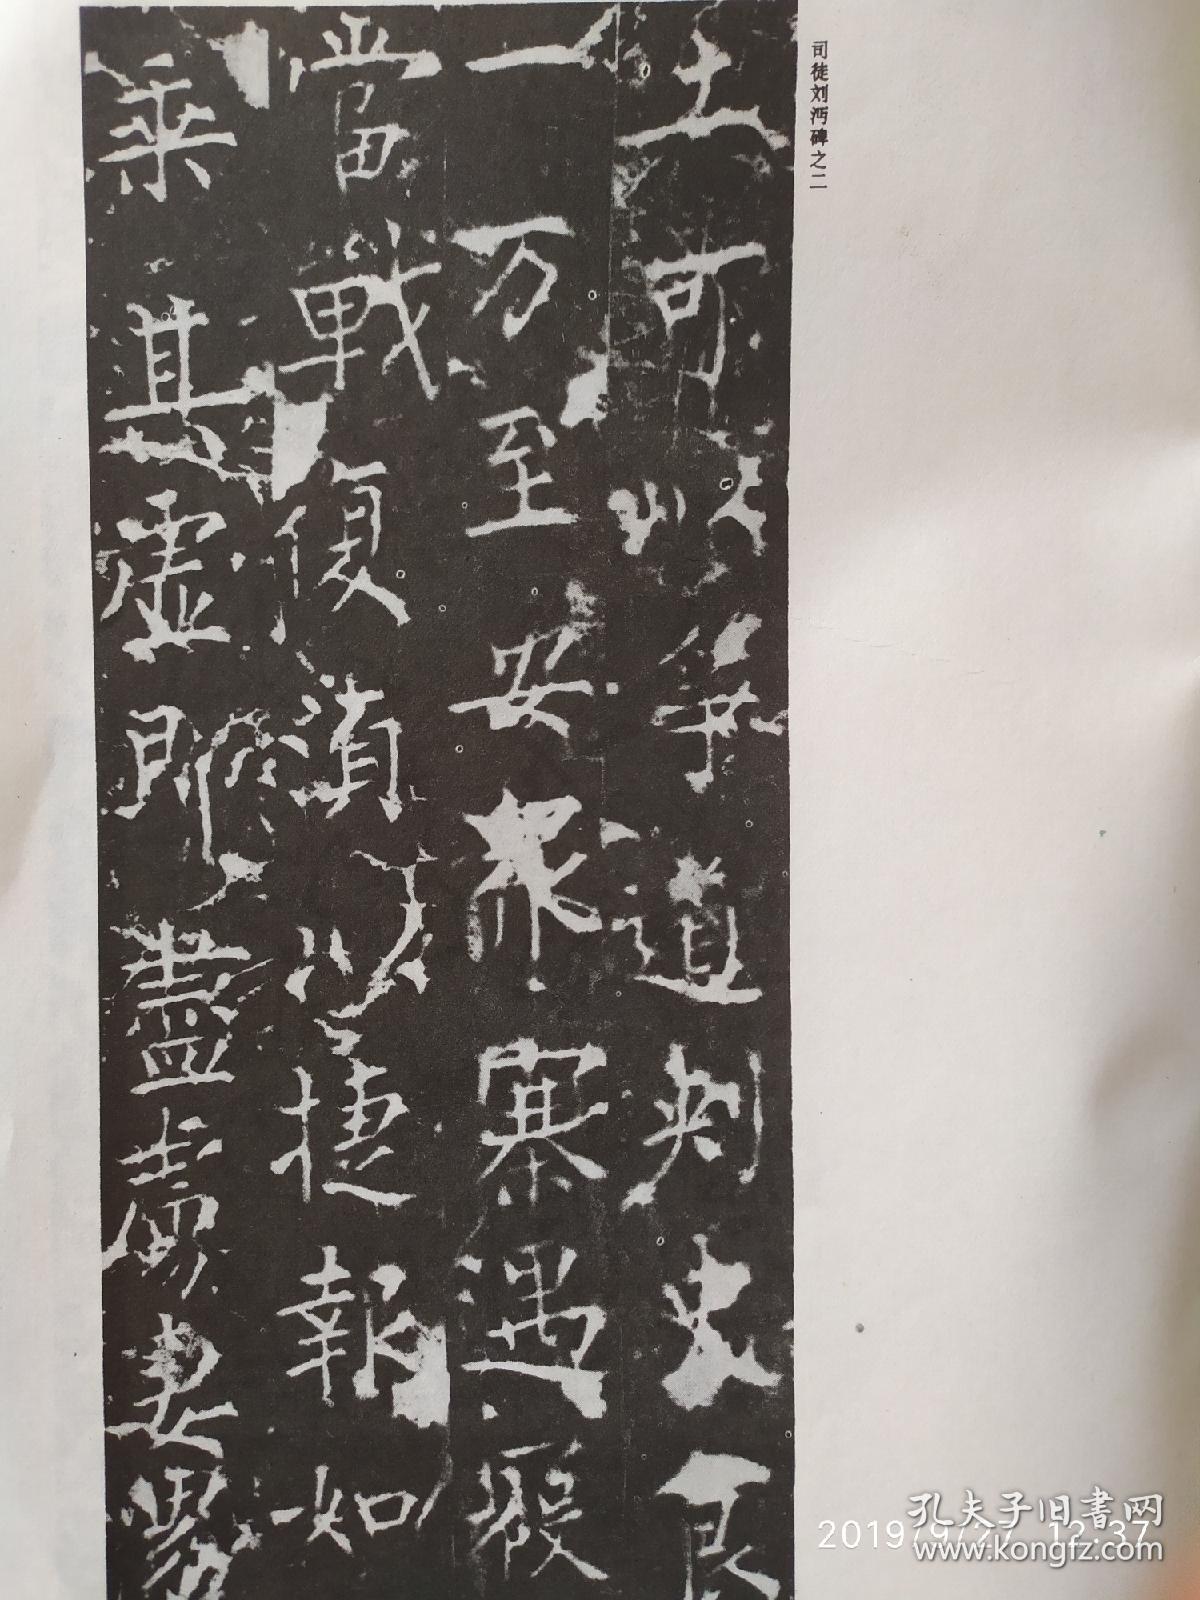 司徒刘沔碑之二
土可以争道刿史良
一万至安衆寨遇殿
當戰復湏以捷報如
乘其虚即盡虜妻男
孔夫子旧書网
www.kongfz.com
2019/9/27 12:37